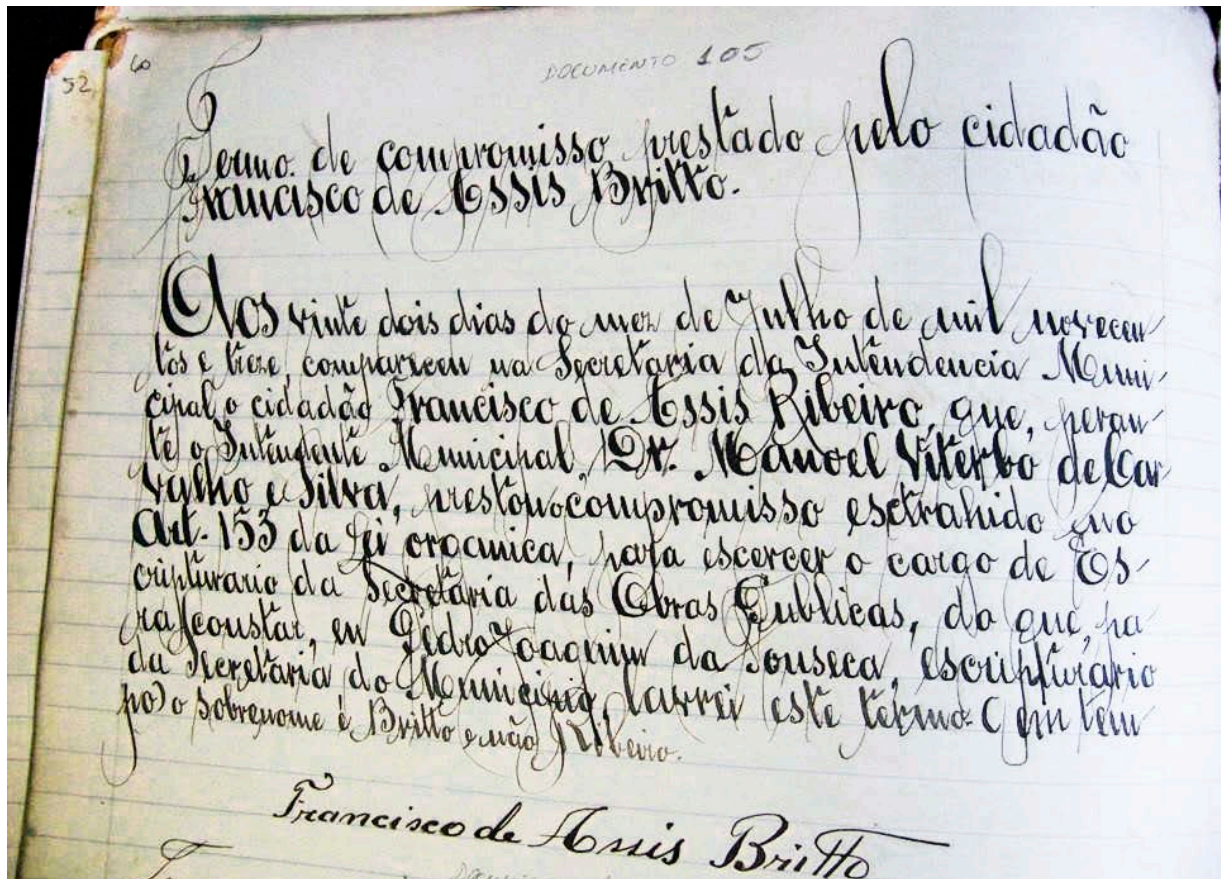 DOCUMENTO 105
52
60
Termo de compromisso prestado pelo cidadão
Francisco de Assis Britto.
Aos vinte dois dias do mez de Julho de mil novecen-
tos e treze, compareceu na Secretaria da Intendencia Muni-
cipal o cidadão Francisco de Assis Ribeiro, que, peran-
te o Intendente Municipal, Dr. Manoel Viterbo de Car-
valho e Silva, prestou o compromisso esctrahido no
Art. 153 da Lei organica, para escercer o cargo de Es-
cripturario da Secretaria das Obras Publicas, do que, pa-
ra constar, eu Pedro Joaquim da Fonseca, escripturario
da Secretaria do Municipio, lavrei este termo. (em tem-
po) o sobrenome é Britto e não Ribeiro.
Francisco de Assis Britto